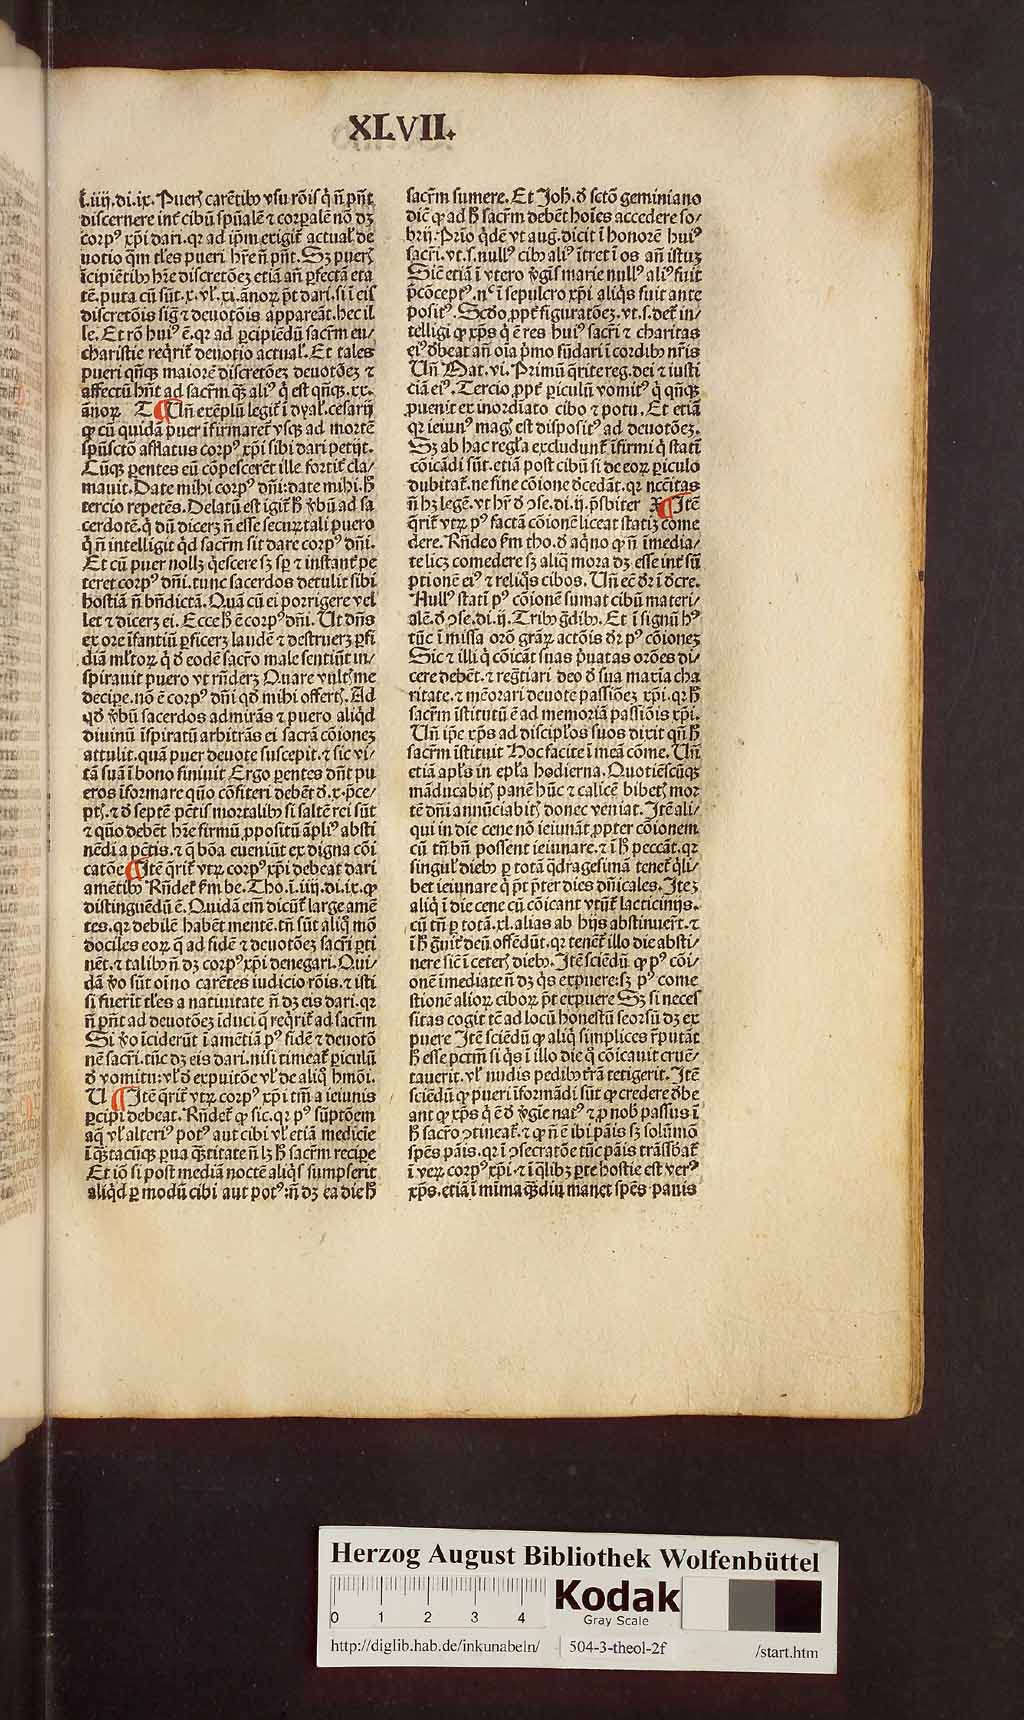 XLVII.
l̃.iiij.di.ix. Puerꝭ carẽtibꝰ vsu rõis q̇ ñ pñt
discernere int̃ cibũ spũalẽ ⁊ corꝑalẽ nõ dꝫ
corpꝰ xp̃i dari. qꝛ ad ip̃m exigit̃ actual̃ de
uotio q̃m tl̃es pueri hr̃e ñ pñt. Sꝫ puerꝭ
ĩcipiẽtibꝰ hr̃e discretõeꝫ etiã añ ꝑfectã eta
tẽ. puta cũ sũt.x.vl̃.xi.ãnoꝝ p̃t dari. si ĩ eis
discretõis sig̃ ⁊ deuotõis appareãt. hec il
le. Et rõ huiꝰ ẽ. qꝛ ad ꝑcipiẽdũ sacr̃m eu/
charistie reqͥrit̃ deuotio actual̃. Et tales
pueri qñqꝫ maiorẽ discretõeꝫ deuotõeꝫ ⁊
affectũ hñt ad sacr̃m qͣꝫ aliꝰ q̇ est qñqꝫ.xx.
ãnoꝝ T ¶ Uñ exẽplũ legit̃ ĩ dyal̃. cesarij
ꝙ cũ quidã puer ĩfirmaret̃ vsqꝫ ad mortẽ
spũsctõ afflatus corpꝰ xp̃i sibi dari petijt.
Cũqꝫ ꝑentes eũ cõpescerẽt ille fortit̃ cla/
mauit. Date mihi corpꝰ dñi: date mihi. ꝧ
tercio repetẽs. Delatũ est igit̃ ꝧ v̾bũ ad sa
cerdotẽ. q̇ dũ dicerꝫ ñ esse securꝫ tali puero
q̇ ñ intelligit qͥd sacr̃m sit dare corpꝰ dñi.
Et cũ puer nollꝫ qͥescere sꝫ sꝑ ⁊ instant̃ pe
teret corpꝰ dñi. tunc sacerdos detulit sibi
hostiã ñ bñdictã. Quã cũ ei porrigere vel
let ⁊ dicerꝫ ei. Ecce ꝧ ẽ corpꝰ dñi. Ut dñs
ex ore ĩfantiũ ꝑficerꝫ laudẽ ⁊ destruerꝫ ꝑfi
diã ml̃toꝝ q̇ ð eodẽ sacr̃o male sentiũt in/
spirauit puero vt rñderꝫ Quare vultꝭ me
decipe. nõ ẽ corpꝰ dñi qð mihi offertꝭ. Ad
qð v̾bũ sacerdos admirãs ⁊ puero aliqͥd
diuinũ ĩspiratũ arbitrãs ei sacrã cõioneꝫ
attulit. quã puer deuote suscepit. ⁊ sic vi/
tã suã ĩ bono finiuit Ergo ꝑentes dñt pu
eros ĩformare qũo cõfiteri debẽt ð.x.p̃ce/
ptꝭ. ⁊ ð septẽ pc̃tis mortalibꝰ si saltẽ rei sũt
⁊ qũo debẽt hr̃e firmũ ꝓpositũ ãpliꝰ absti
nẽdi a pc̃tis. ⁊ q̃ bõa eueniũt ex digna cõi
catõe ¶ Itẽ qͥrit̃ vtꝝ corpꝰ xp̃i debeat dari
amẽtibꝰ Rñdet̃ ẜm be. Tho. ĩ.iiij.di.ix. ꝙ
distinguẽdũ ẽ. Quidã em̃ dicũt̃ large amẽ
tes. qꝛ debilẽ habẽt mentẽ. tñ sũt aliqͦ mõ
dociles eoꝝ q̃ ad fidẽ ⁊ deuotõeꝫ sacr̃i ꝑti
nẽt. ⁊ talibꝰ ñ dꝫ corpꝰ xp̃i denegari. Qui/
dã v̾o sũt oĩno carẽtes iudicio rõis. ⁊ isti
si fuerĩt tl̃es a natiuitate ñ dꝫ eis dari. qꝛ
ñ pñt ad deuotõeꝫ ĩduci q̃ reqͥrit̃ ad sacr̃m
Si v̾o ĩciderũt ĩ amẽtiã pꝰ fidẽ ⁊ deuotõ
nẽ sacr̃i. tũc dꝫ eis dari. nisi timeat̃ ꝑiculũ
ð vomitu: vl̃ ð expuitõe vl̃ de aliqͦ hmõi.
U ¶ Itẽ qͥrit̃ vtꝝ corpꝰ xp̃i tm̃ a ieiunis
ꝑcipi debeat. Rñdet̃ ꝙ sic. qꝛ pꝰ sũptõem
aq̃ vl̃ alteriꝰ potꝰ aut cibi vl̃ etiã medicie
ĩ qͣtacũqꝫ ꝑua qͣtitate ñ lꝫ ꝧ sacr̃m recipe
Et iõ si post mediã noctẽ aliqͥs sumpserit
aliqͥd ꝑ modũ cibi aut potꝰ: ñ dꝫ ea die ꝧ
sacr̃m sumere. Et Joh̃. ð sctõ geminiano
diẽ ꝙ ad ꝧ sacr̃m debẽt hoĩes accedere so/
brij. Prĩo qͥdẽ vt aug̃. dicit ĩ honorẽ huiꝰ
sacr̃i. vt.s. nullꝰ cibꝰ aliꝰ ĩtret ĩ os añ istuꝫ
Sic̃ etiã ĩ vtero v̾gĩs marie nullꝰ aliꝰ fuit
p̃cõceptꝰ. nᶜ ĩ sepulcro xp̃i aliqͥs fuit ante
positꝰ. Scðo ꝓpt̃ figuratõeꝫ. vt.s. det̃ in/
telligi ꝙ xp̃s q̇ ẽ res huiꝰ sacr̃i ⁊ charitas
eiꝰ ðbeat añ oĩa p̃mo fũdari ĩ cordibꝰ nr̃is
Uñ Mat.vi. Primũ q̃rite reg. dei ⁊ iusti
ciã eiꝰ. Tercio ꝓpt̃ ꝑiculũ vomitꝰ q̇ qñqꝫ
ꝓuenit ex inordiato cibo ⁊ potu. Et etiã
qꝛ ieiunꝰ magꝭ est dispositꝰ ad deuotõeꝫ.
Sꝫ ab hac regl̃a excludunt̃ ĩfirmi q̇ statĩ
cõicãdi sũt. etiã post cibũ si de eoꝝ ꝑiculo
dubitat̃. ne sine cõione ðcedãt. qꝛ ncc̃itas
ñ hꝫ legẽ. vt hr̃ ð ꝯse.di.ij. p̃sbiter X ¶ Itẽ
qͥrit̃ vtꝝ pꝰ factã cõionẽ liceat statiꝫ come
dere. Rñdeo ẜm tho. ð aqͥno ꝙ ñ ĩmedia/
te licꝫ comedere sꝫ aliq̃ mora dꝫ esse int̃ sũ
ptionẽ eiꝰ ⁊ reliqͦs cibos. Uñ ec̃ ðr ĩ ðcre.
Nullꝰ statĩ pꝰ cõionẽ sumat cibũ materi/
alẽ. ð ꝯse.di.ij. Tribꝰ g̃dibꝰ. Et ĩ signũ hꝰ
tũc ĩ missa orõ grãꝝ actõis ðr pꝰ cõioneꝫ
Sic ⁊ illi q̇ cõicãt suas p̃uatas orões di/
cere debẽt. ⁊ reg̃tiari deo ð sua maxia cha
ritate. ⁊ mẽorari deuote passiõeꝫ xp̃i. qꝛ ꝧ
sacr̃m ĩstitutũ ẽ ad memoriã passiõis xp̃i.
Uñ ip̃e xp̃s ad discipl̃os suos dixit qñ ꝧ
sacr̃m ĩstituit Hoc facite ĩ meã cõme. Uñ
etiã apl̃s in epl̃a hodierna. Quotiẽscũqꝫ
mãducabitꝭ panẽ hũc ⁊ calicẽ bibetꝭ mor
tẽ dñi annũciabitꝭ donec veniat. Itẽ ali/
qui in die cene nõ ieiunãt ꝓpter cõionem
cũ tñ bñ possent ieiunare. ⁊ ĩ ꝧ peccãt. qꝛ
singul̃ diebꝰ ꝑ totã qͣdragesimã tenet̃ qͥli/
bet ieiunare q̇ p̃t p̃ter dies dñicales. Iteꝫ
aliq̇ ĩ die cene cũ cõicant vtũt̃ lacticinijs.
cũ tñ ꝑ totã.xl. alias ab hijs abstinuer̃t. ⁊
ĩ ꝧ g̃uit̃ deũ offẽdũt. qꝛ tenẽt̃ illo die absti/
nere sic̃ ĩ ceterꝭ diebꝰ. Itẽ sciẽdũ ꝙ pꝰ cõi/
onẽ ĩmediate ñ dꝫ qͥs expuere: sꝫ pꝰ come
stionẽ alioꝝ ciboꝝ p̃t expuere Sꝫ si neces
sitas cogit tẽ ad locũ honestũ seorsũ dꝫ ex
puere Itẽ sciẽdũ ꝙ aliq̇ sim̃plices r̃putãt
ꝧ esse pctm̃ si qͥs ĩ illo die qͦ cõicauit cruẽ/
tauerit. vl̃ nudis pedibꝰ tr̃ã tetigerit. Itẽ
sciẽdũ ꝙ pueri ĩformãdi sũt ꝙ credere ðbe
ant ꝙ xp̃s q̇ ẽ ð v̾gĩe natꝰ ⁊ ꝓ nob̃ passus ĩ
ꝧ sacr̃o ꝯtineat̃. ⁊ ꝙ ñ ẽ ibi pãis sꝫ solũmõ
spẽs pãis. qꝛ ĩ ꝯsecratõe tũc pãis trãssb̃at̃
ĩ veꝝ corpꝰ xp̃i. ⁊ ĩ qͥlibꝫ ꝑte hostie est verꝰ
xp̃s. etiã ĩ mĩma qͣꝫdiu manet spẽs panis
Herzog August Bibliothek Wolfenbüttel
0 1 2 3 4
Kodak
Gray Scale
http://diglib.hab.de/inkunabeln/ 504-3-theol-2f /start.htm